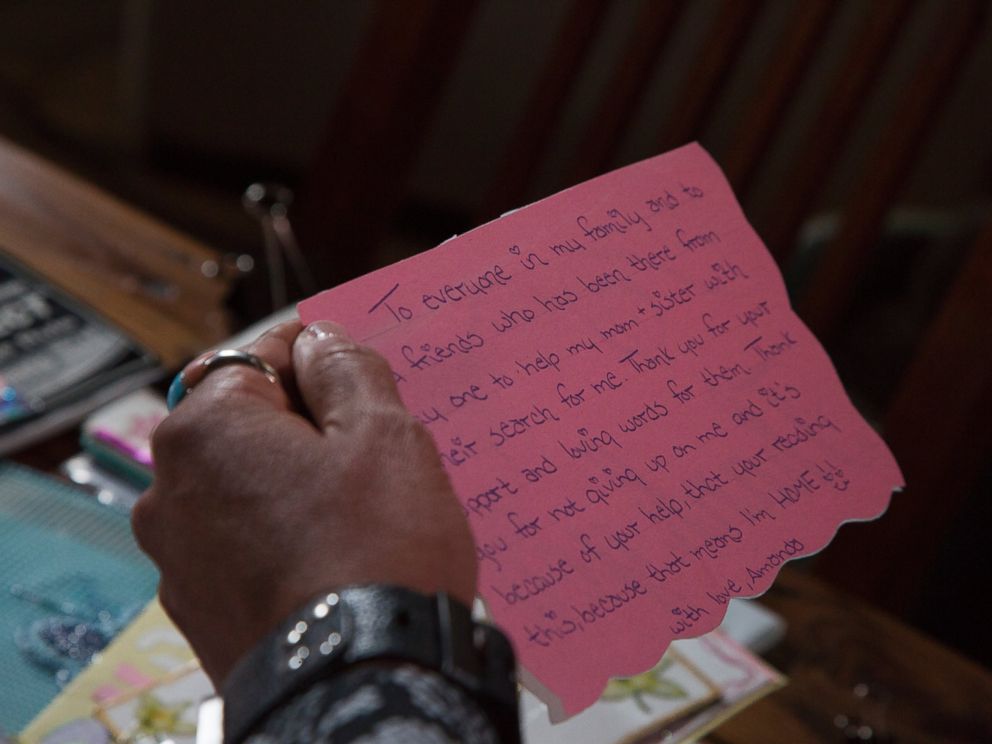 To everyone in my family and to
friends who has been there from
one to help my mom + sister with
their search for me. Thank you for your
support and loving words for them. Thank
you for not giving up on me and it's
because of your help, that your reading
this, because that means I'm HOME!!
with love, Amanda